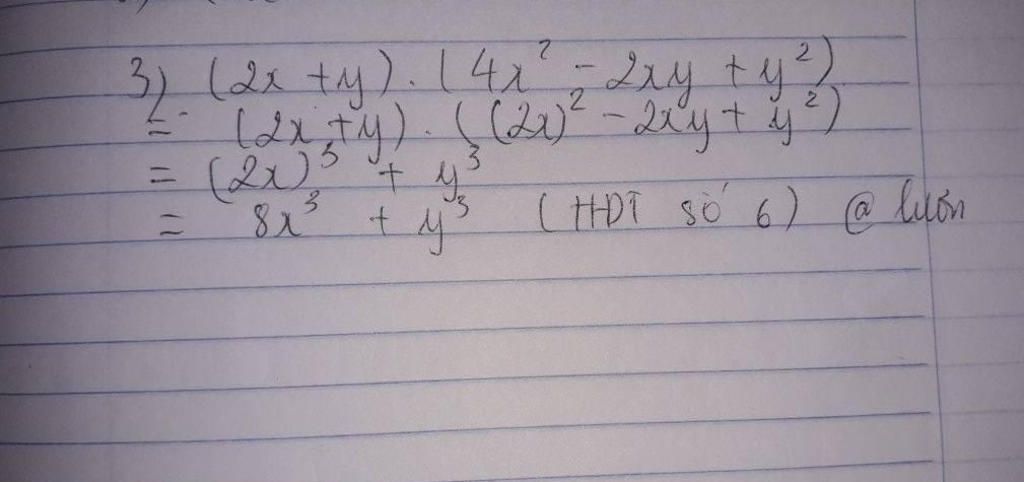 3) (2x + y) . (4x² - 2xy + y²)
= (2x + y) . ((2x)² - 2xy + y²)
= (2x)³ + y³
= 8x³ + y³ (HĐT số 6) @